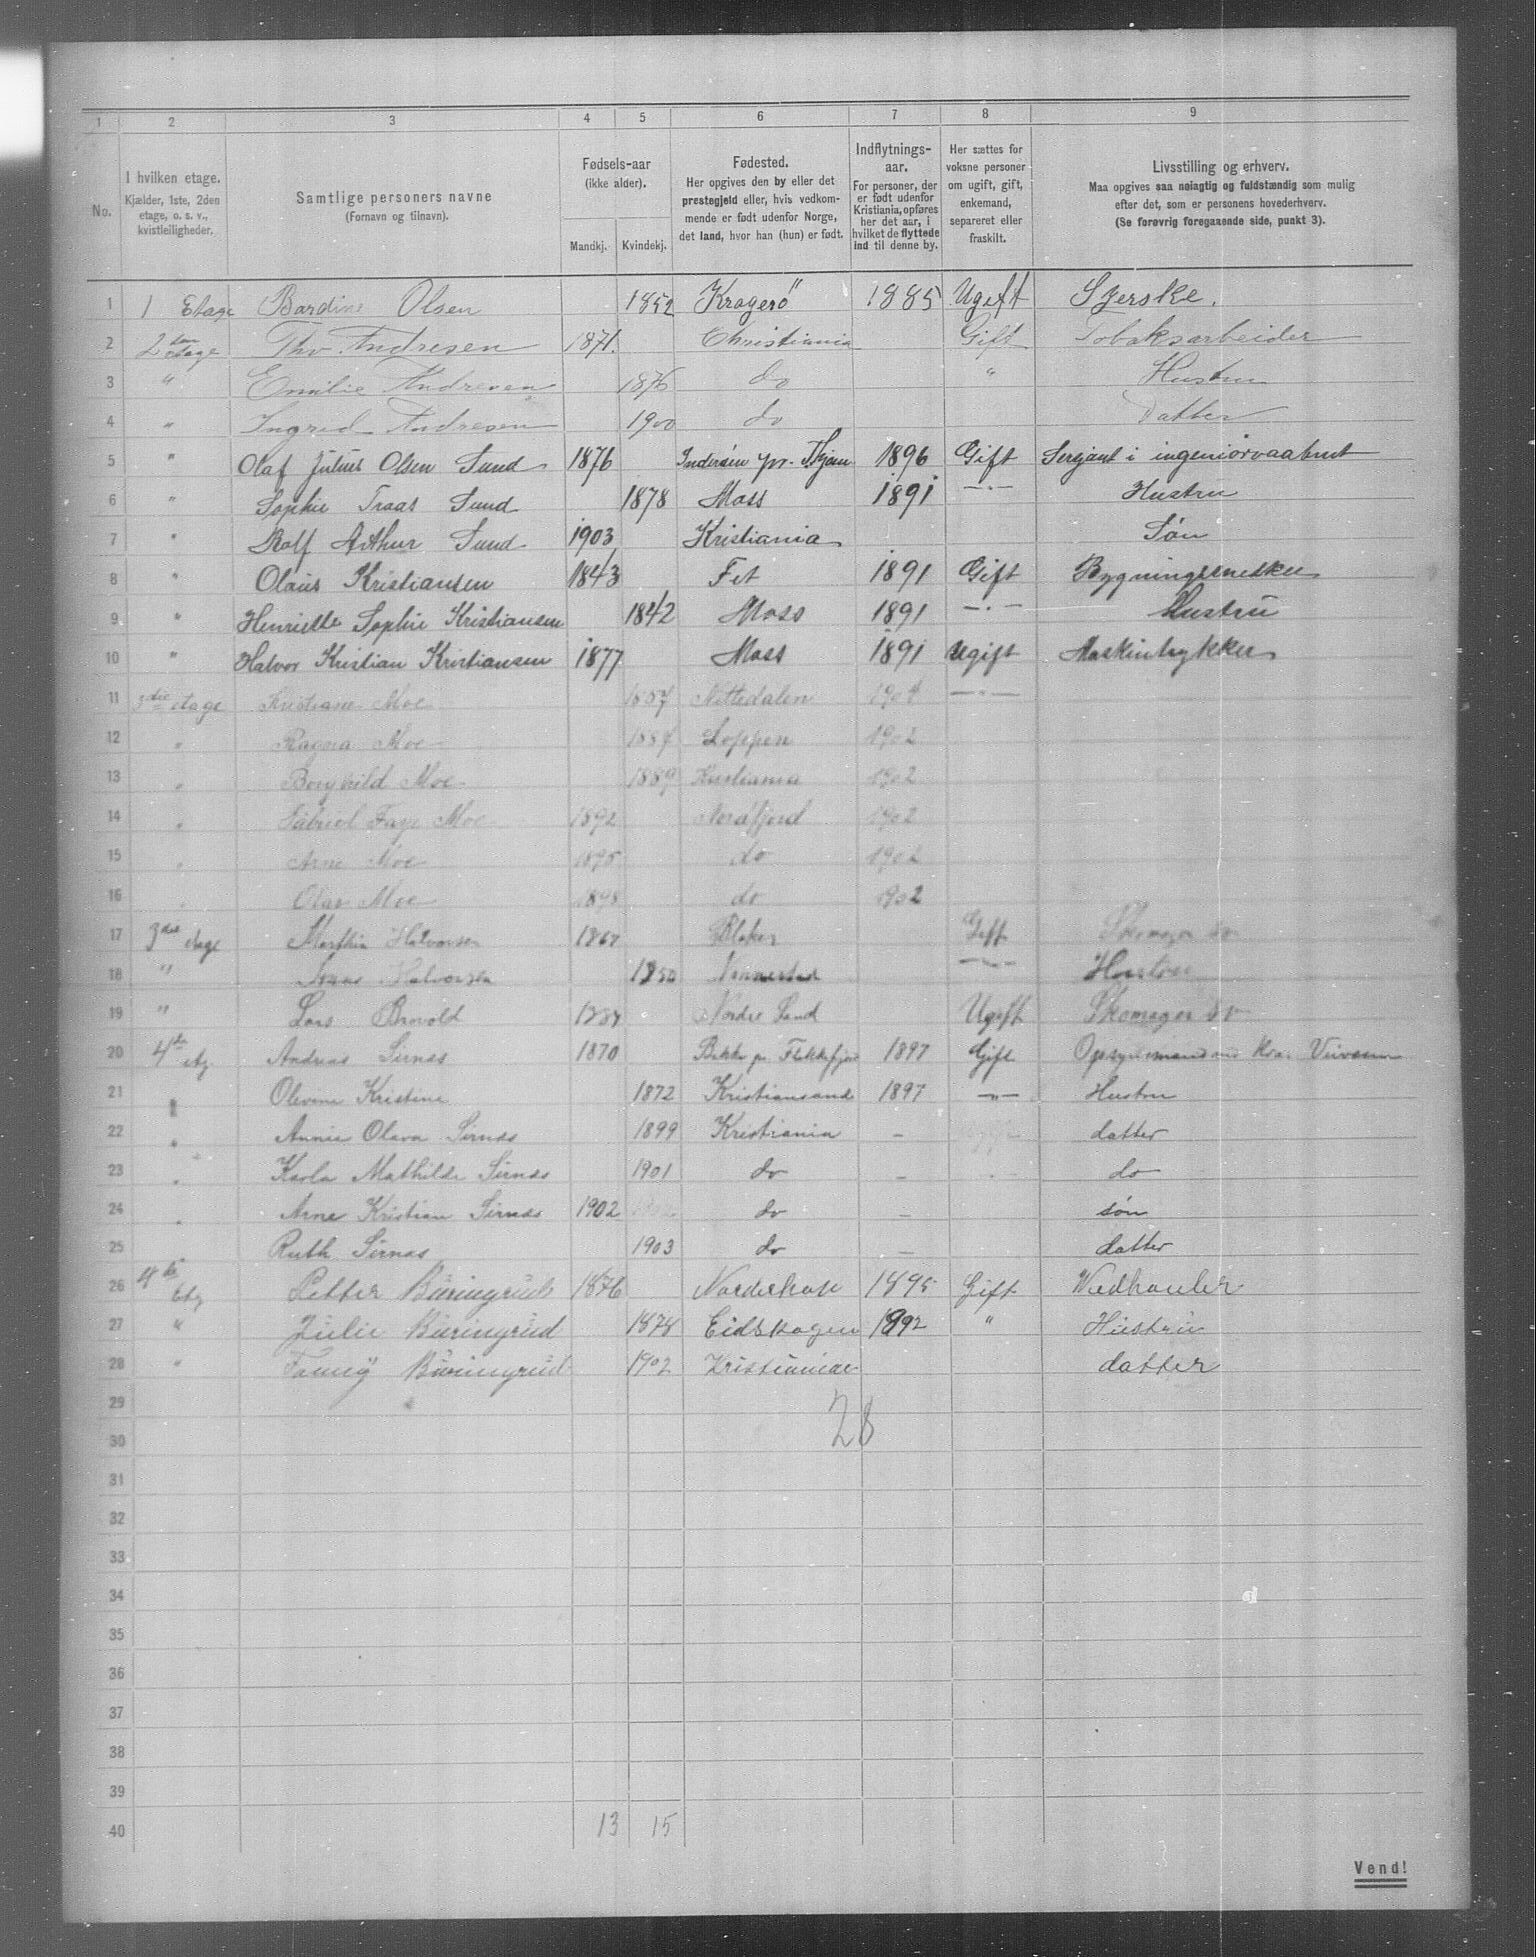 1 2 3 4 5 6 7 8 9
No.
I hvilken etage.
Kjælder, 1ste, 2den
etage, o. s. v.,
kvistleiligheder.
Samtlige personers navne
(Fornavn og tilnavn).
Fødsels-aar
(ikke alder).
Mandkj. Kvindekj.
Fødested.
Her opgives den by eller det
prestegjeld eller, hvis vedkom-
mende er født udenfor Norge,
det land, hvor han (hun) er født.
Indflytnings-
aar.
For personer, der
er født udenfor
Kristiania, opføres
her det aar, i
hvilket de flyttede
ind til denne by.
Her sættes for
voksne personer
om ugift, gift,
enkemand,
separeret eller
fraskilt.
Livsstilling og erhverv.
Maa opgives saa nøiagtig og fuldstændig som mulig
efter det, som er personens hovederhverv.
(Se forøvrig foregaaende side, punkt 3).
1 1 Etage Bardine Olsen 1852 Kragerö 1885 Ugift Syerske.
2 2den etage Tho Andresen 1871 Christiania Gift Tobaksarbeider
3 " Emilie Andresen 1876 do " Hustru
4 " Ingrid Andresen 1900 do Datter
5 " Olaf Julius Olsen Sund 1876 Inderøen pr. 1896 Gift Serjant i ingeniørvaabnet
6 " Sophie Traas Sund 1878 Moss 1891 -"- Hustru
7 " Rolf Arthur Sund 1903 Kristiania Søn
8 " Olaus Kristiansen 1843 Fet 1891 Gift Bygningssnekker
9 " Henriette Sophie Kristiansen 1842 Moss 1891 -"- Hustru
10 " Halvor Kristian Kristiansen 1877 Moss 1891 Ugift Maskintrykker
11 3die etage Kristiane Moe 1857 Nittedalen 1904 -"-
12 " Ragna Moe 1887 Loppen 1902
13 " Borghild Moe 1889 Kristiania 1902
14 " Gabriel Faye Moe 1892 Nordfjord 1902
15 " Arne Moe 1895 do 1902
16 " Olav Moe 1898 do 1902
17 3die etage Marthin Halvorsen Blaker Gift Skomager
18 " Halvorsen 1850 -"- Hustru
19 " Lars Arnold Nordre Land Ugift Skomager
20 4de Etg Andreas Sirnes 1870 Bakke pr Flekkefjord 1897 Gift Opsynsmand ved Kra. Veivesen
21 " Olevine Kristine 1872 Kristiansand 1897 -"- Hustru
22 " Annie Olava Sirnes 1899 Kristiania - datter
23 " Karla Mathilde Sirnes 1901 do - do
24 " Arne Kristian Sirnes 1902 do - søn
25 " Ruth Sirnes 1903 do - datter
26 4de Etg Petter Buringrud 1876 Norderhov 1895 Gift Vedhauler
27 " Julie Buringrud 1878 Eidskogen 1892 " Hustru
28 " Fanny Buringrud 1902 Kristiania datter
29
28
30
31
32
33
34
35
36
37
38
39
40 13 15
Vend!